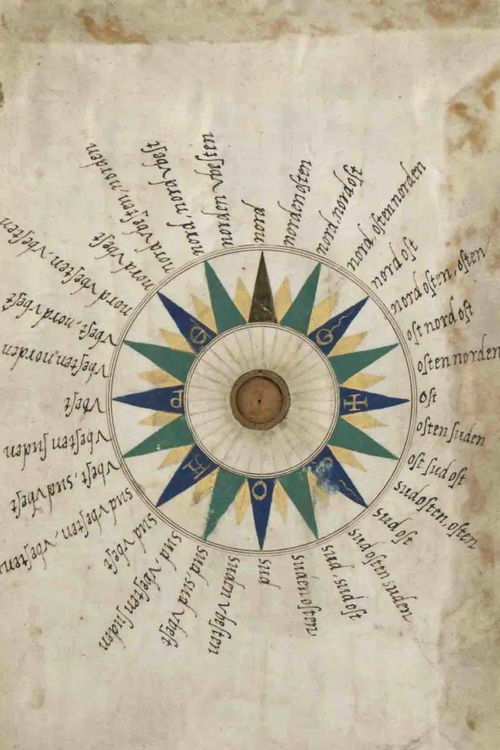 nord
norden osten
nord nord ost
nord, osten norden
nord ost
nord osten, osten
ost nord ost
osten norden
ost
osten suden
ost sud ost
sud osten, osten
sud ost
sud osten suden
sud, sud ost
suden osten
sud
suden vbesten
sud sud vbest
sud vbesten suden
sud vbest
sud vbesten, vbesten
vbest, sud vbest
vbesten suden
vbest
vbesten, norden
vbest, nord vbest
nord vbesten, vbesten
nord vbest
nord vbesten, norden
nord, nord vbest
norden vbesten